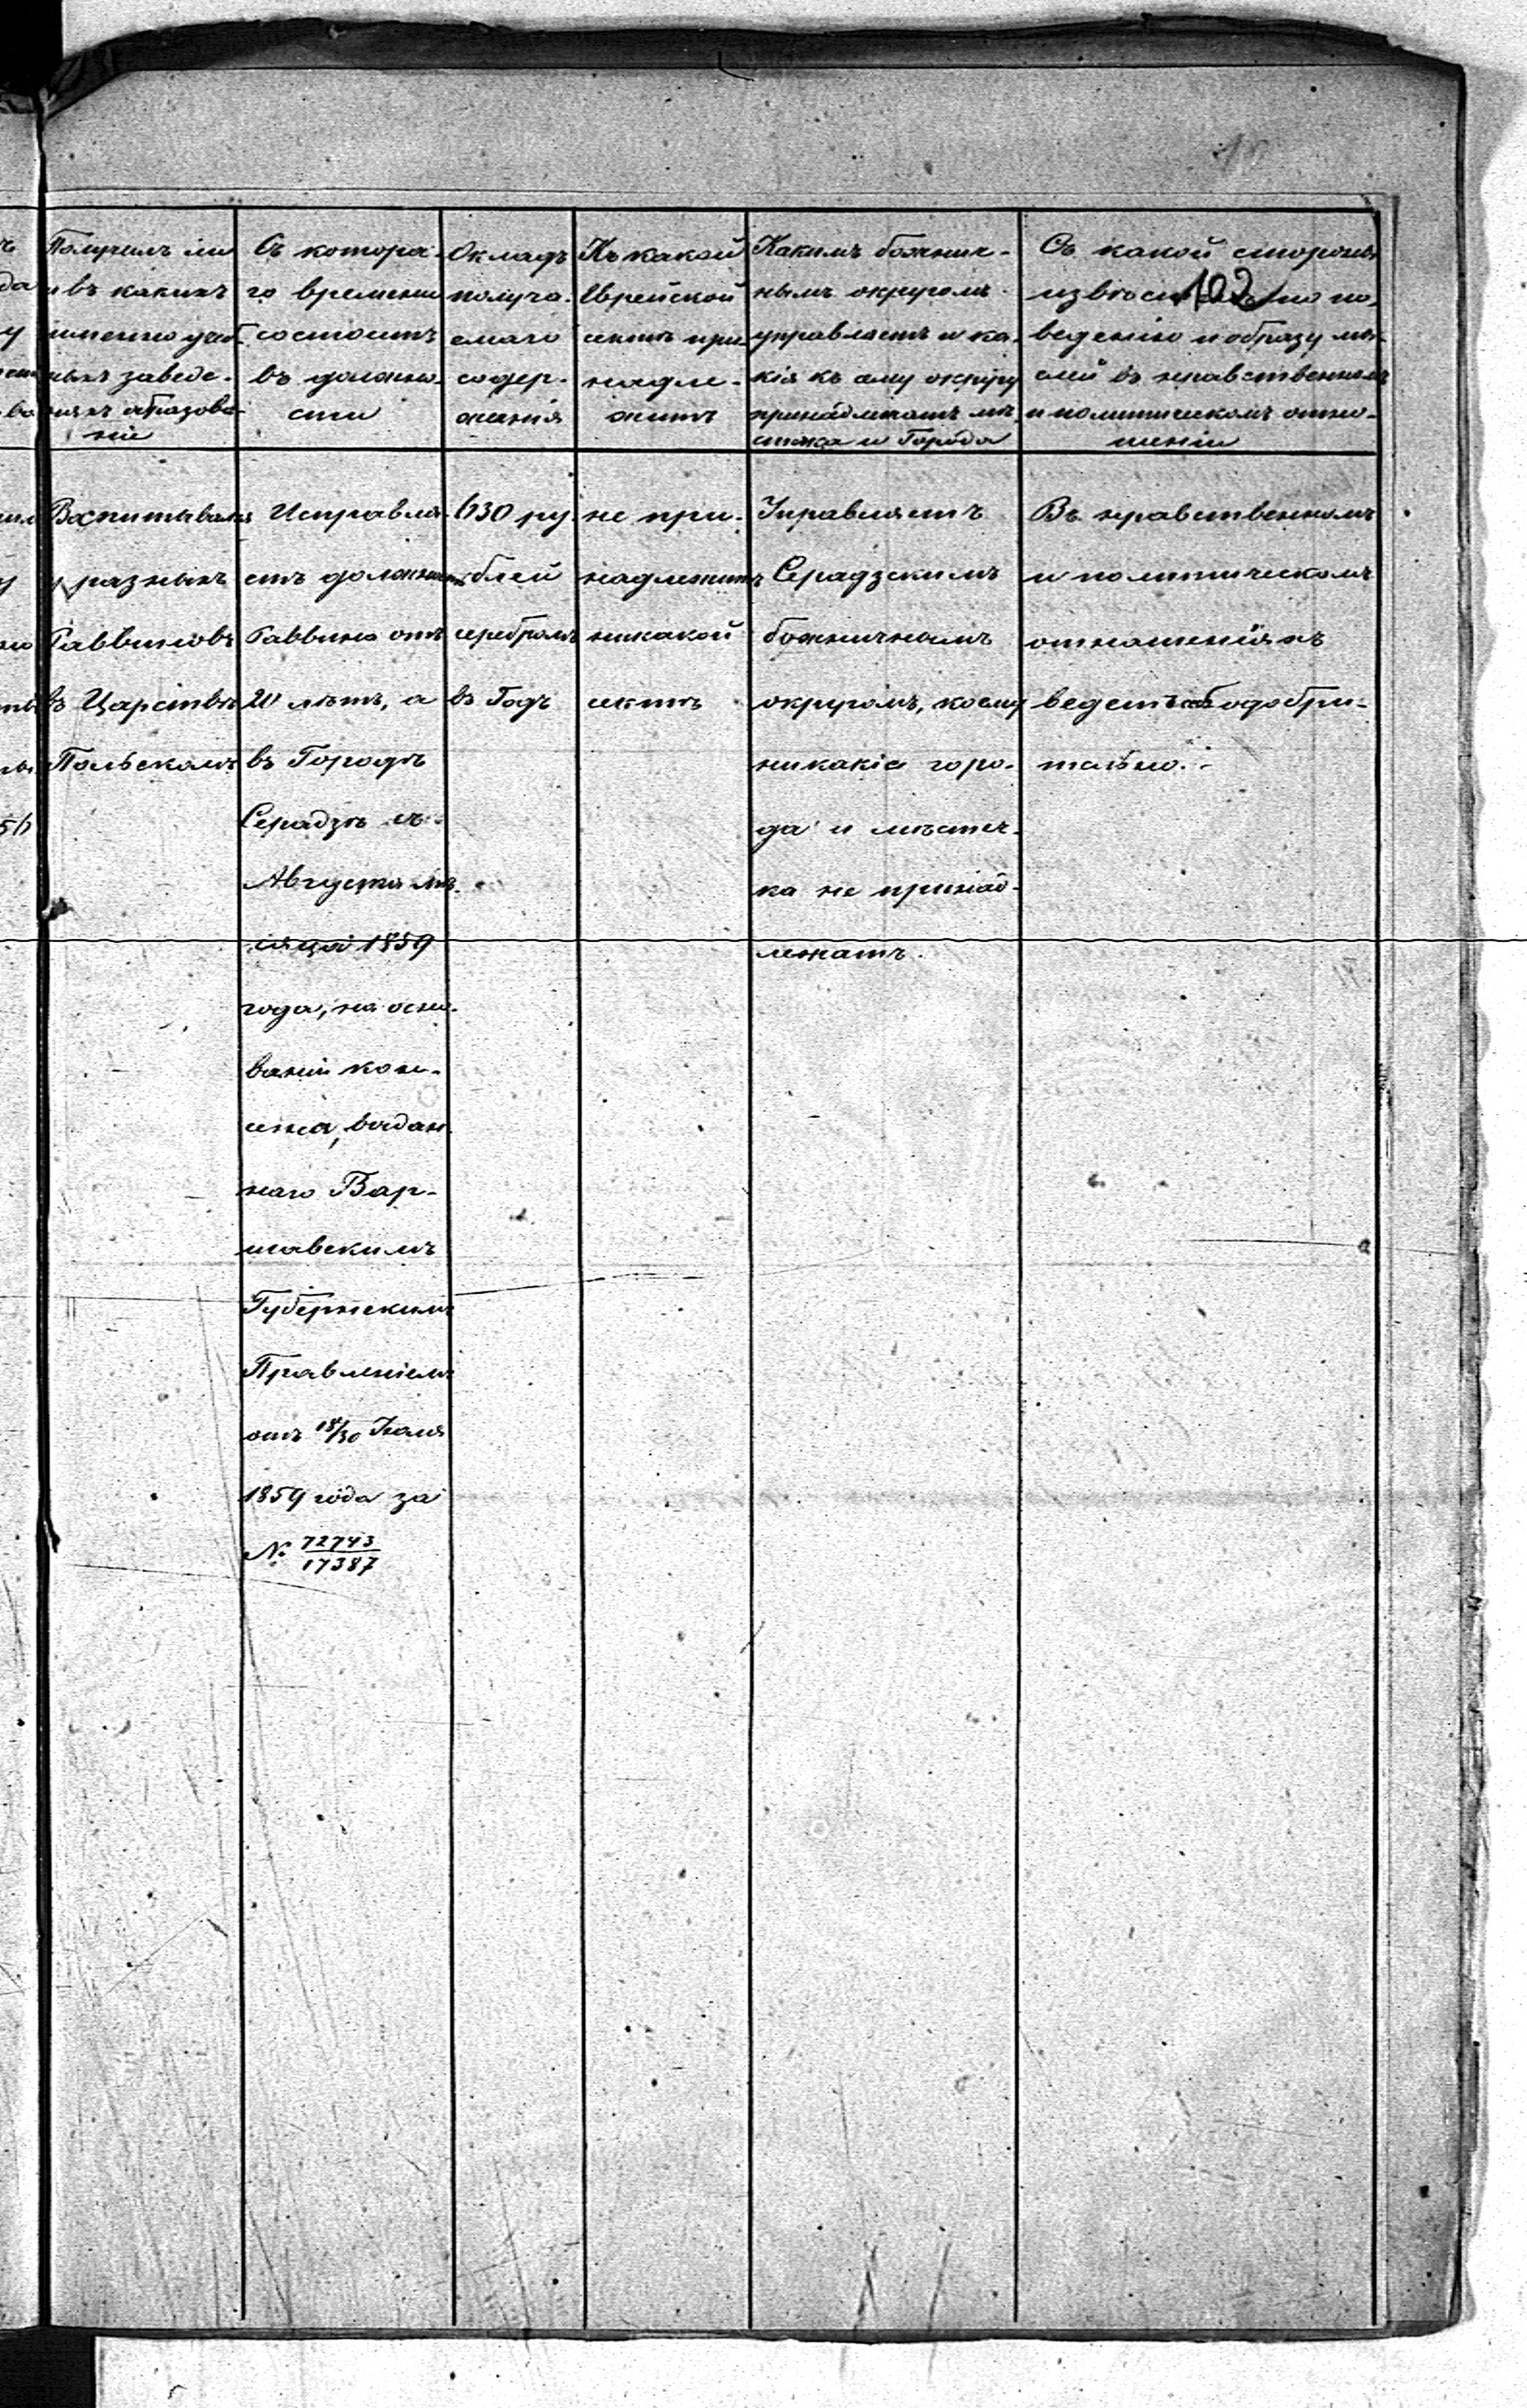 102
Получилъ ли
и въ какихъ
именно учеб-
ныхъ заведе-
ніяхъ образова-
ніе
Съ котора-
го времени
состоитъ
въ должно-
сти
Окладъ
получа-
емаго
содер-
жанія
Къ какой
Еврейской
сектѣ при-
надле-
житъ
Какимъ божнич-
нымъ округомъ
управляетъ и ка-
кія къ ему округу
принадлежатъ мѣ-
стечка и Города
Съ какой стороны
по по-
веденію и образу мы-
слей въ нравственномъ
и политическомъ отно-
шеніи
Воспитывался
у разныхъ
Раввиновъ
въ Царствѣ
Польскомъ
Исправля-
етъ должность
Раввина отъ
20 лѣтъ, а
въ Городѣ
Серадзѣ съ
Августа мѣ-
сяца 1859
года, на осно-
ваніи кон-
сенса, выдан-
наго Вар-
шавскимъ
Губернскимъ
Правленіемъ
отъ 18/30 Іюля
1859 года за
№ 72743/17387
630 ру-
блей
серебромъ
въ Годъ
не при-
надлежитъ
никакой
сектѣ
Управляетъ
Серадзскимъ
божничнымъ
округомъ, коему
никакіе горо-
да и мѣстеч-
ка не принад-
лежатъ.
Въ нравственномъ
и политическомъ
отношеніяхъ
ведетъ себя одобри-
тельно.